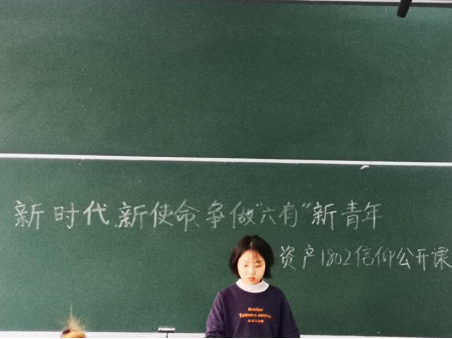 新时代、新使命、争做"六有"新青年
资产1802信仰公开课